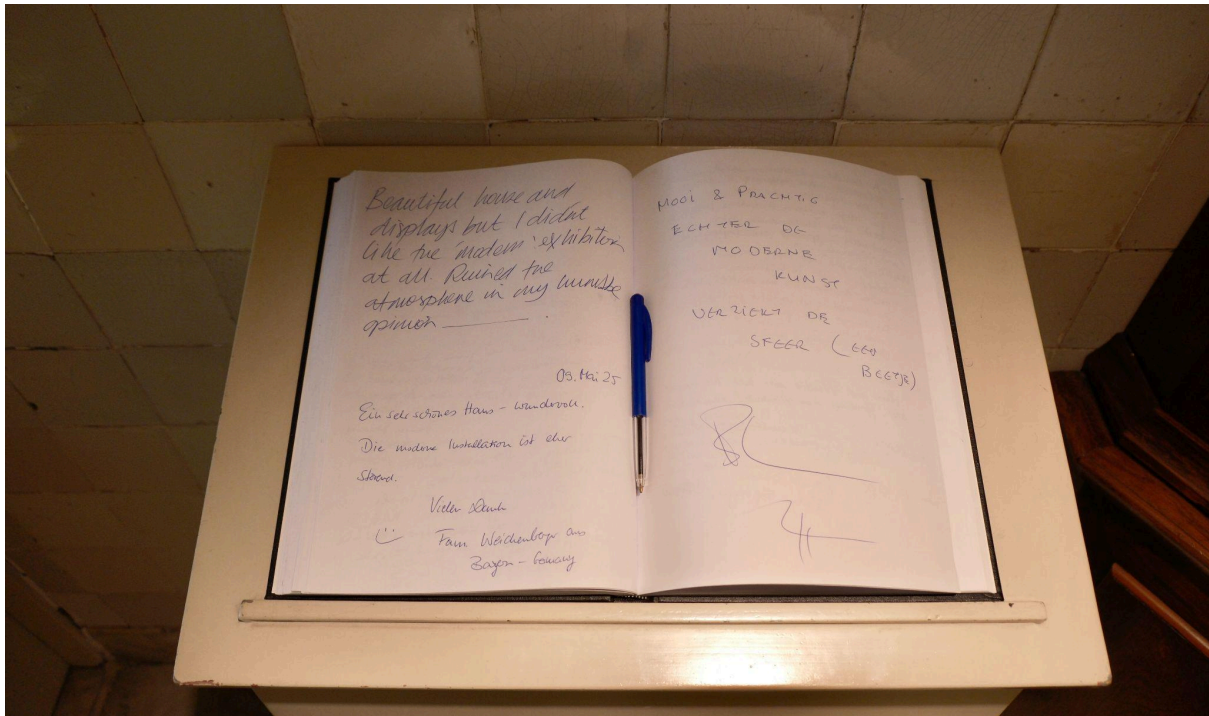 Beautiful house and
displays but I didnt
like the 'modern' exhibition
at all. Ruined the
atmosphere in my humble
opinion
09. Mai 25
Ein sehr schönes Haus - wundervoll.
Die moderne Installation ist eher
störend.
Vielen Dank
Fam Weichenberger aus
Bayern - Germany
MOOI & PRACHTIG
ECHTER DE
MODERNE
KUNST
VERZIEKT DE
SFEER (EEN
BEETJE)